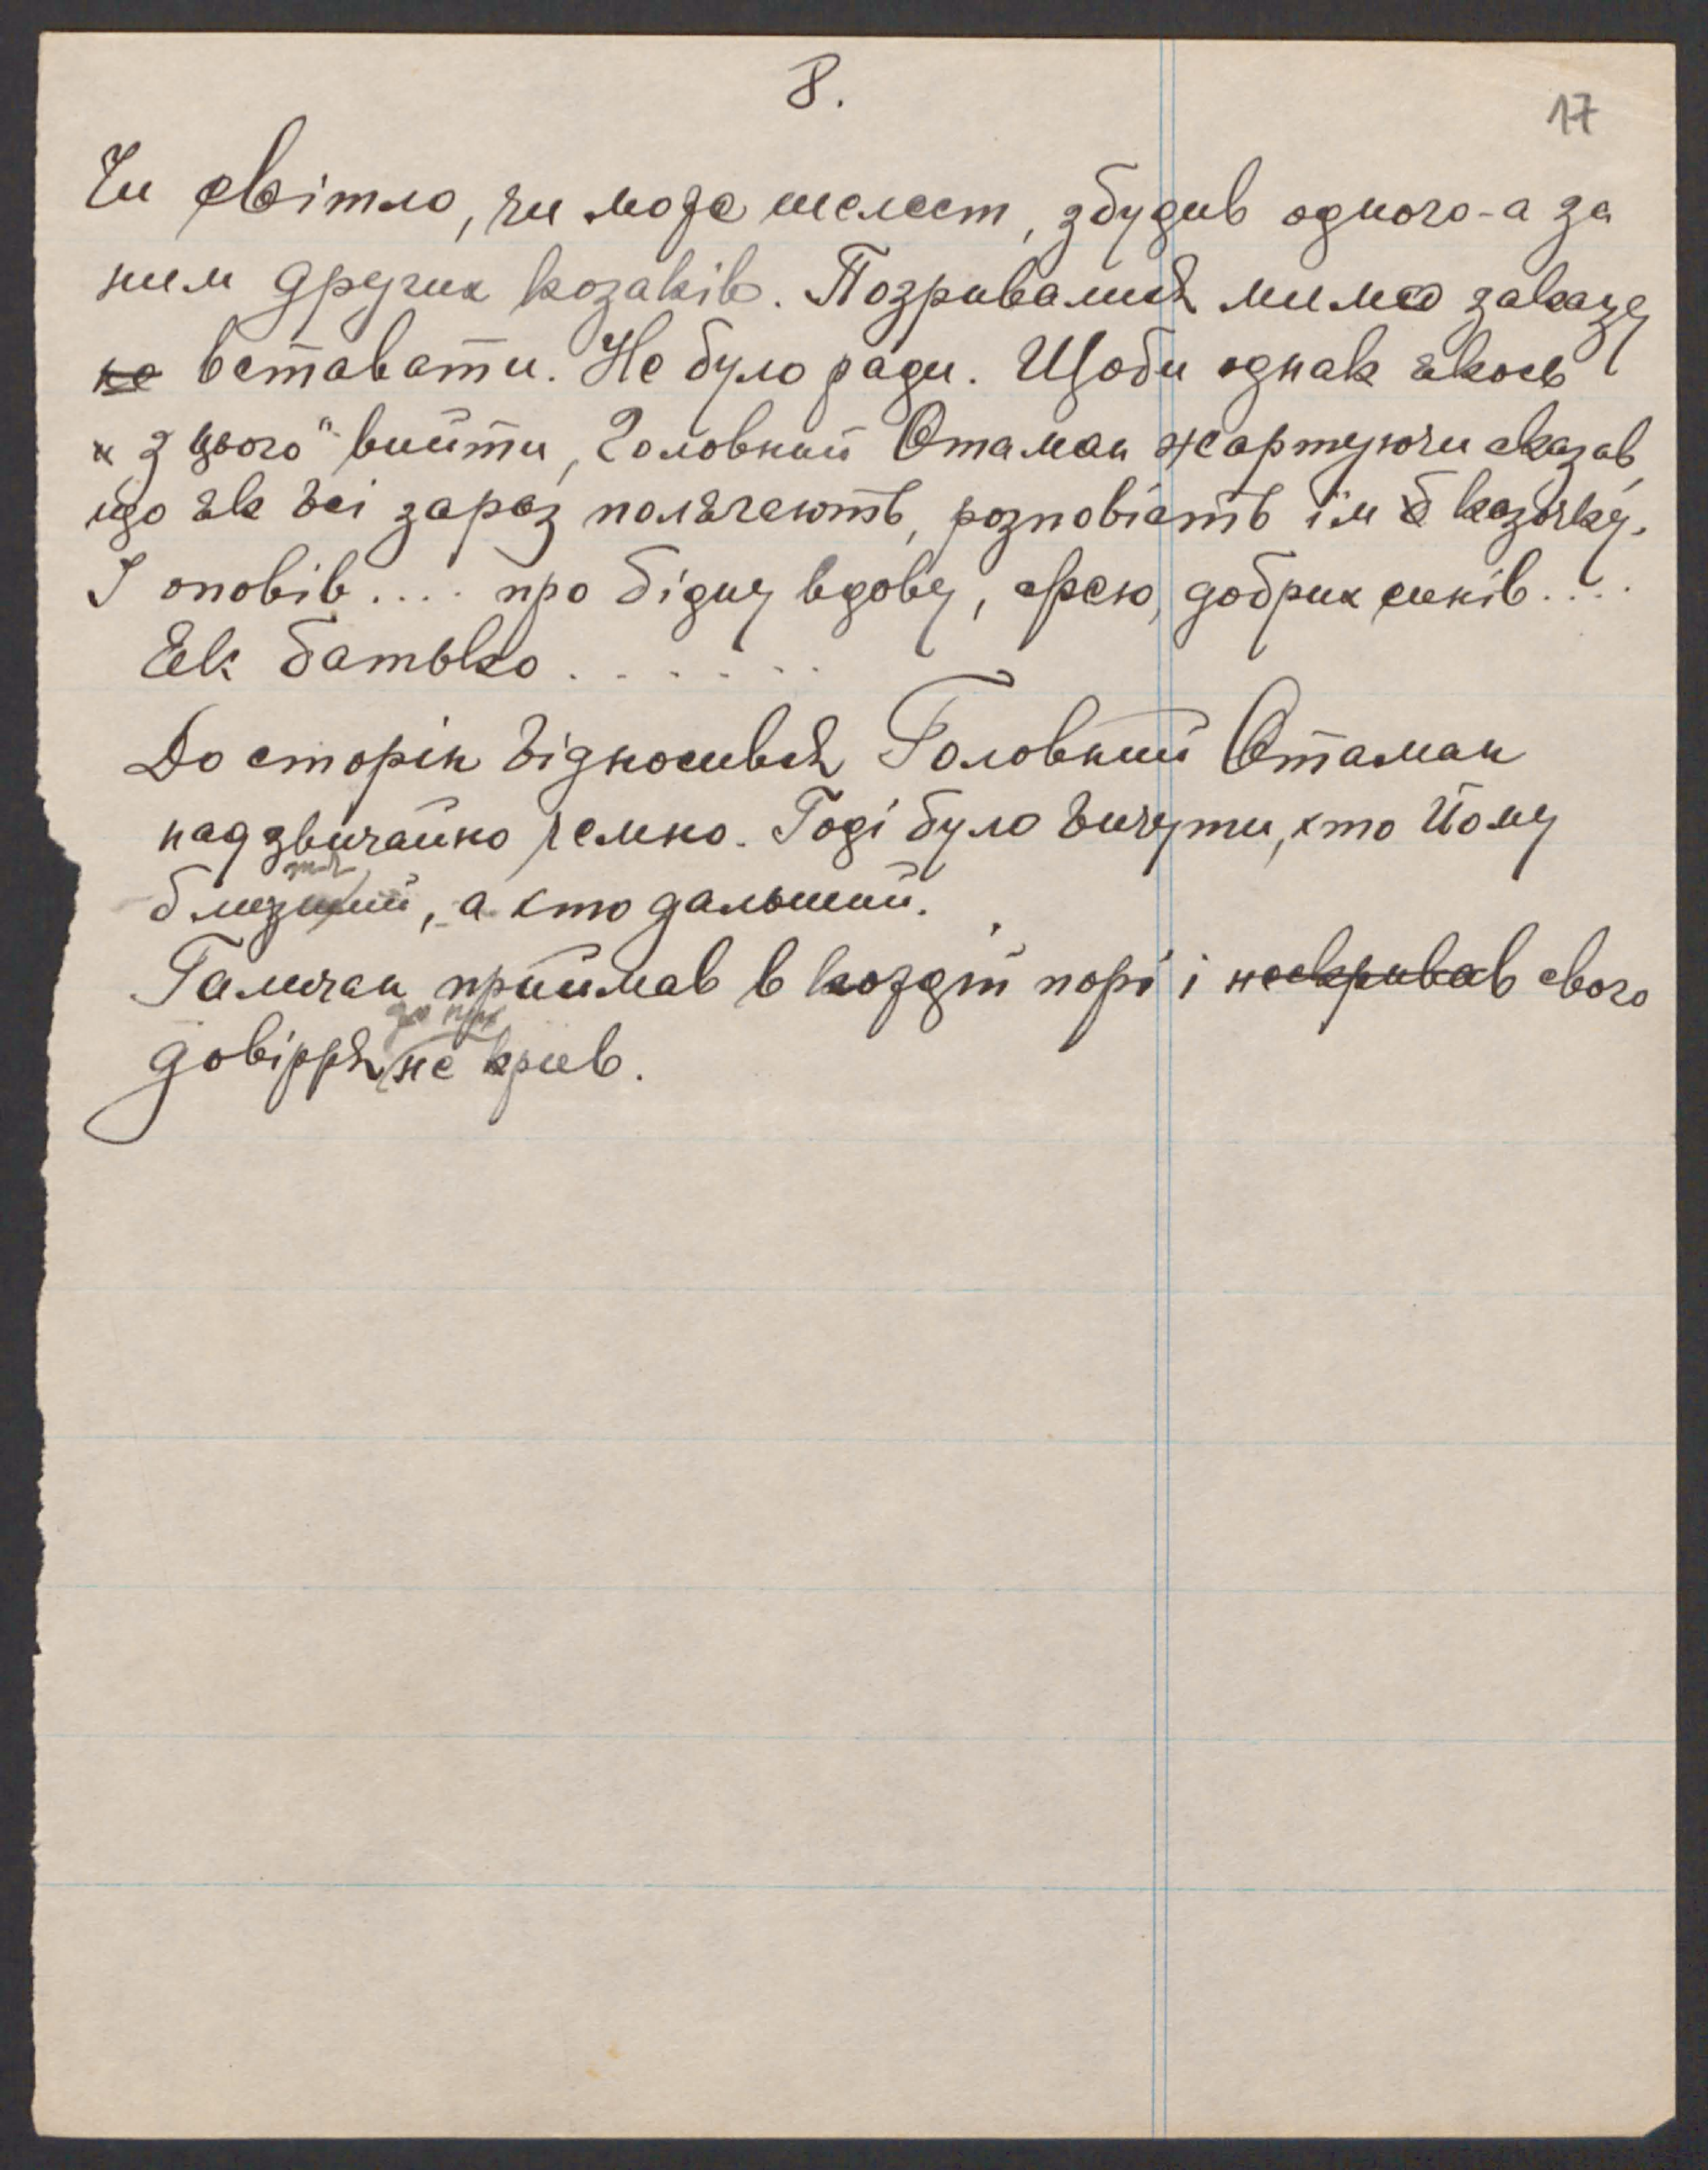 8.
17
Чи світло, чи може шелест, збудив одного - а за
ним других козаків. Позривались мимо заказу
не вставати. Не було ради. Щоби однак якось
„з цього" вийти, Головний Отаман жартуючи сказав,
що як всі зараз полягають, розповість їм казочку.
І оповів.... про бідну вдову, добрих синів....
Як батько.......
До сторін відносився Головний Отаман
надзвичайно чемно. Годі було вичути, хто Йому
близший, а хто дальший.
Галичан приймав в кождій порі і нескривав свого
до них
довірря не крив.